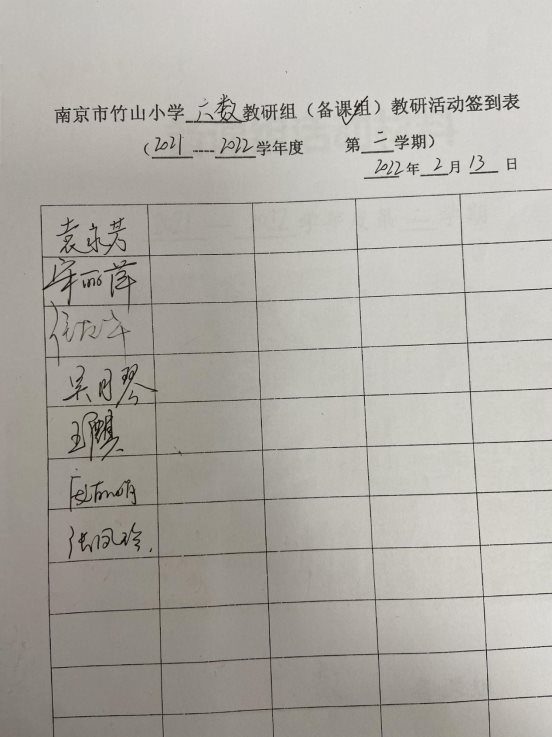 南京市竹山小学六数教研组（备课组）教研活动签到表
（2021----2022学年度 第二学期）
2022年2月13日
袁永芳
宋丽萍
吴月琴
张凤玲.